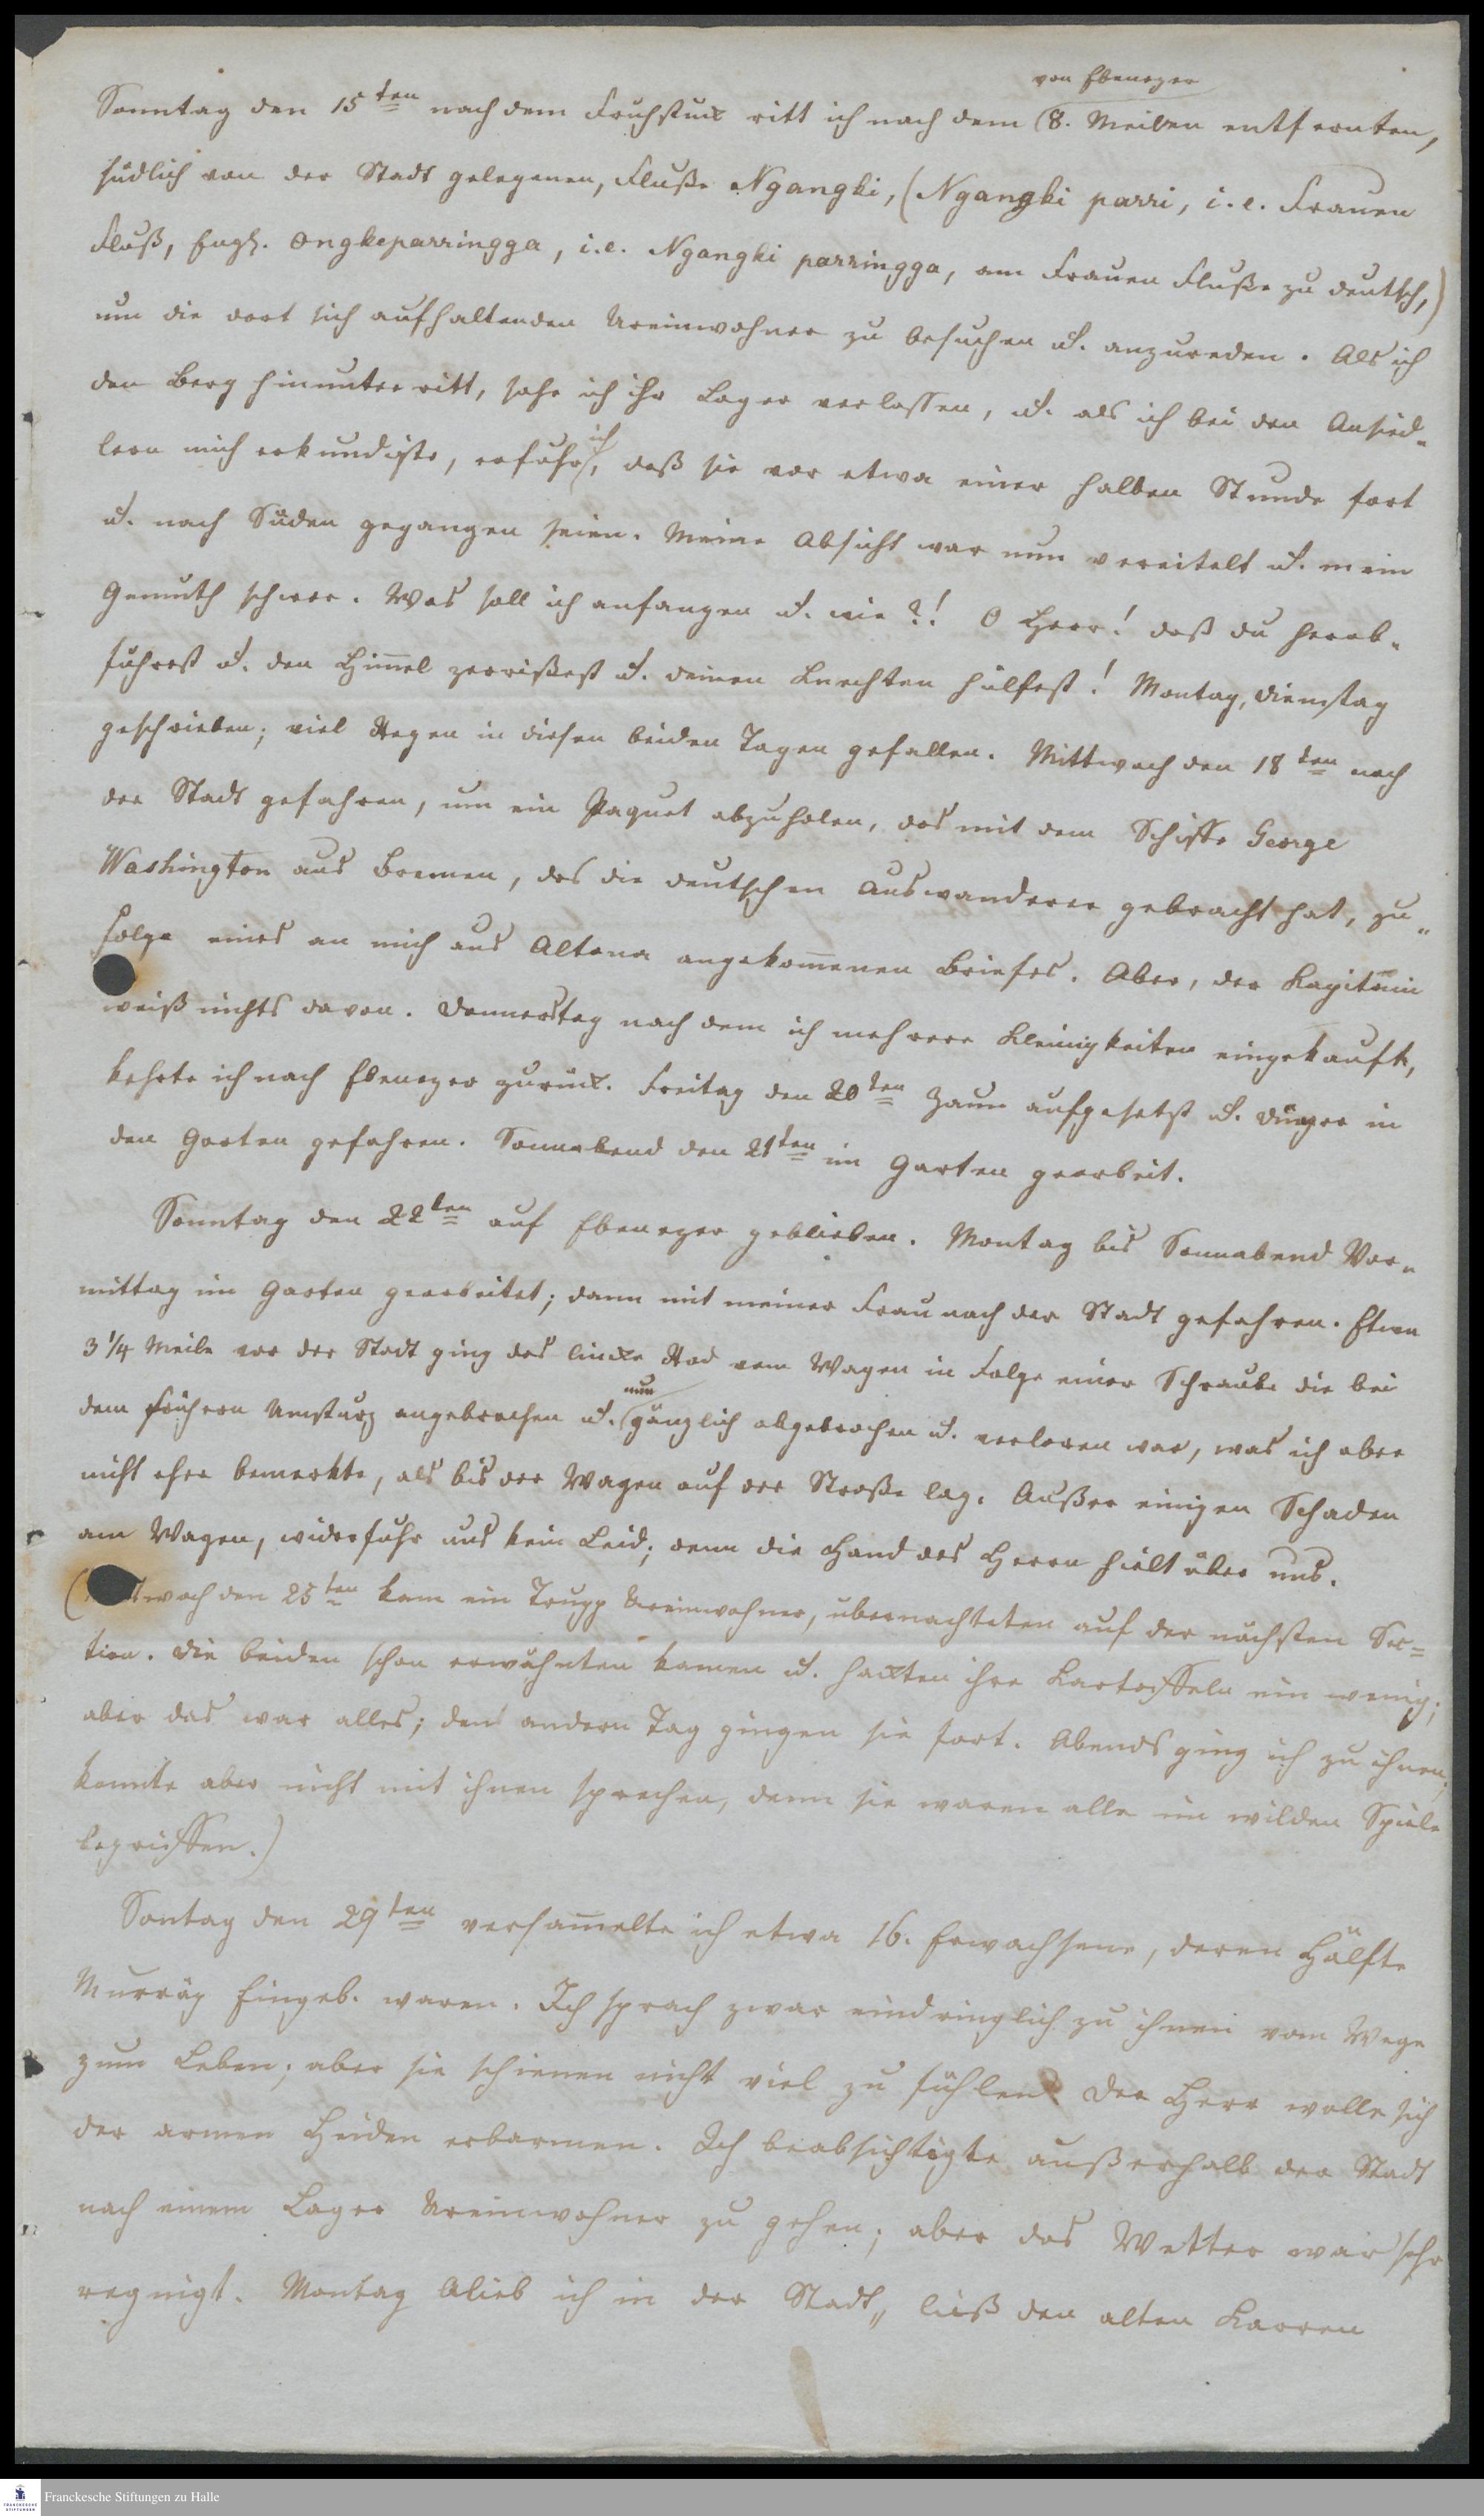 von Ebenezer
Sonntag den 15ten nach dem Fruhstück ritt ich nach dem 8. Meilen entfernten,
südlich von der Stadt gelegenen, Fluße Ngangki, (Ngangki parri, i.e. Frauen
Fluß, Engl. Ongkeparringga, i.e. Ngangki parringga, am Frauen Fluße zu deutsch,)
um die dort sich aufhaltenden Ureinwohner zu besuchen u. anzureden. Als ich
den Berg hinunter ritt, sahe ich ihr Lager verlassen, u. als ich bei den Ansied-
lern mich erkundigte, erfuhr ich, daß sie vor etwa einer halben Stunde fort
u. nach Süden gegangen seien. Meine Absicht war nun vereitelt u. mein
Gemüth schwer. Was soll ich anfangen u. wie?! O Herr! daß du herab-
führest u. den Him̄el zerrißest u. deinen Knechten hülfest! Montag, Dienstag
geschrieben; viel Regen in diesen beiden Tagen gefallen. Mittwoch den 18ten nach
der Stadt gefahren, um ein Paquet abzuholen, das mit dem Schiffe George
Washington aus Bremen, das die deutschen Auswanderer gebracht hat, zu-
folge eines an mich aus Altona angekom̄enen Briefes. Aber, der Kapitain
weiß nichts davon. Donnerstag nach dem ich mehrere Kleinigkeiten eingekauft,
kehrte ich nach Ebenezer zurück. Freitag den 20ten Zaun aufgesetzt u. Dünger in
den Garten gefahren. Sonnabend den 21ten im Garten gearbeit.
Sonntag den 22ten auf Ebenezer geblieben. Montag bis Sonnabend Vor-
mittag im Garten gearbeitet; dann mit meiner Frau nach der Stadt gefahren. Etwa
3 1/4 Meile vor der Stadt ging das lincke Rad vom Wagen in Folge einer Schraube die bei
dem frühern Umsturz angebrochen u. nun gänzlich abgebrochen u. verloren war, was ich aber
nicht eher bemerkte, als bis der Wagen auf der Straße lag. Außer einigen Schaden
am Wagen, widerfuhr uns kein Leid; denn die Hand des Herrn hielt über uns.
woch den 25ten kam ein Trupp Ureinwohner, übernachteten auf der nächsten Sec-
tion. Die beiden schon erwähnten kamen u. hackten ihre Kartoffeln ein wenig;
aber das war alles; den andern Tag gingen sie fort. Abends ging ich zu ihnen,
konnte aber nicht mit ihnen sprechen, denn sie waren alle im wilden Spiele
begriffen.)
Sontag den 29ten versam̄elte ich etwa 16. Erwachsene, deren Hälfte
Murray Eingeb. waren. Ich sprach zwar eindringlich zu ihnen vom Wege
zum Leben; aber sie schienen nicht viel zu fühlen. Der Herr wolle sich
der armen Heiden erbarmen. Ich beabsichtigte außerhalb der Stadt
nach einem Lager Ureinwohner zu gehen; aber das Wetter war sehr
regnigt. Montag blieb ich in der Stadt, ließ den alten Karren
Franckesche Stiftungen zu Halle